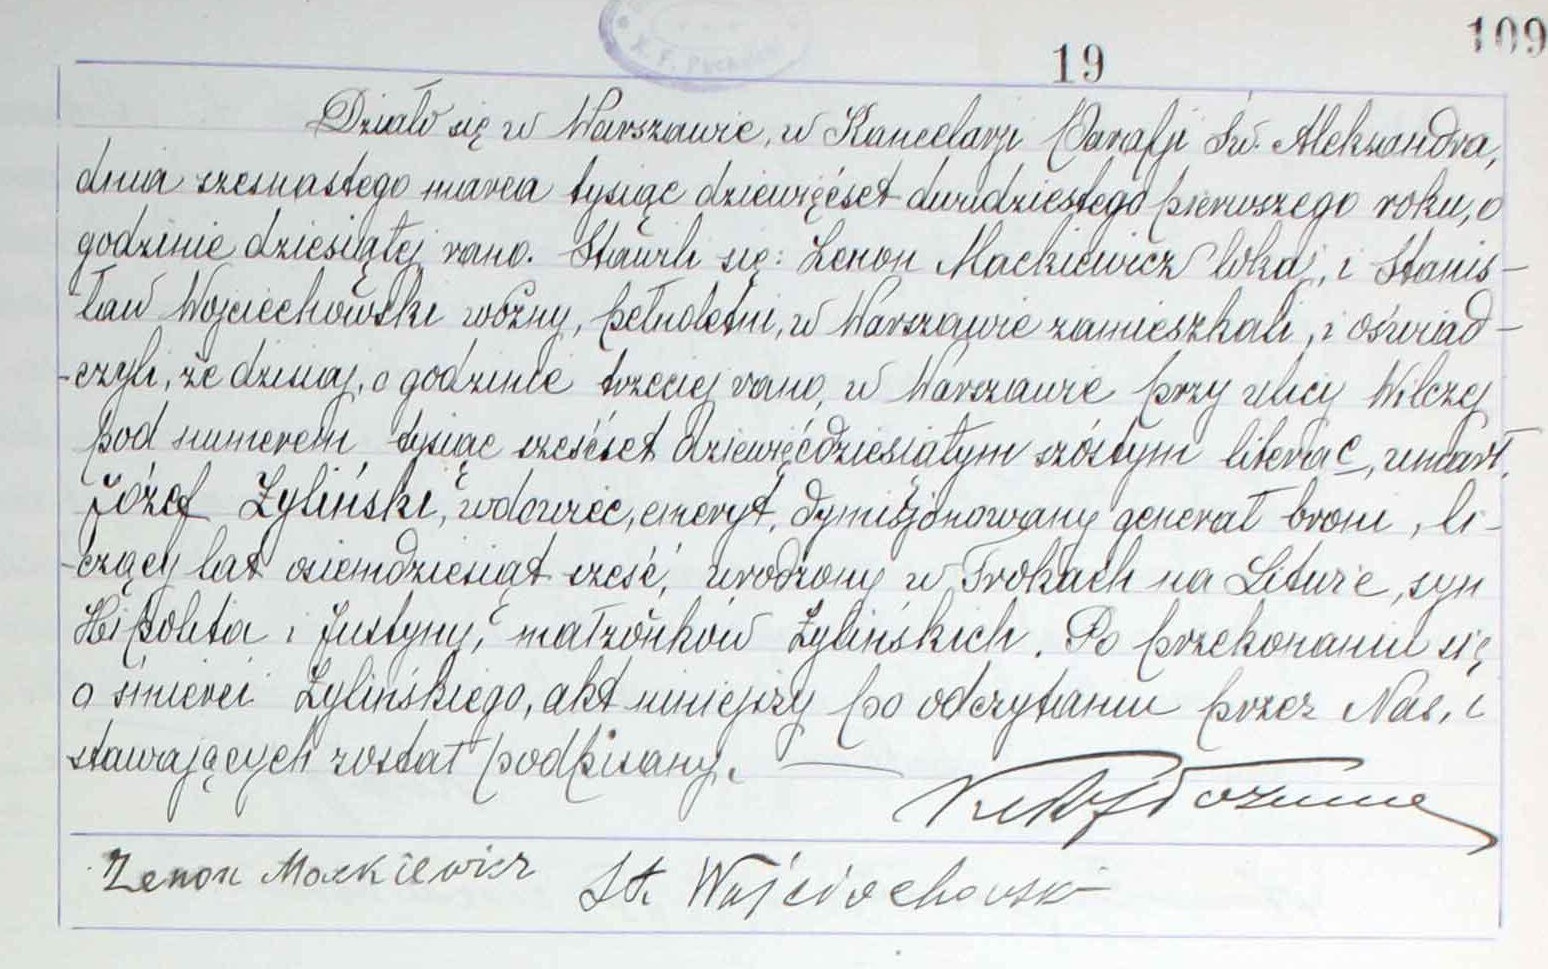 109
19
Działo się w Warszawie, w Kancelarji Parafji Św. Aleksandra,
dnia szesnastego marca tysiąc dziewięćset dwudziestego pierwszego roku, o
godzinie dziesiątej rano. Stawili się: Zenon Mackiewicz lokaj, i Stanis-
ław Wojciechowski woźny, pełnoletni, w Warszawie zamieszkali, i oświad-
-czyli, że dzisiaj, o godzinie trzeciej rano, w Warszawie przy ulicy Wilczej
pod numerem tysiąc sześćset dziewięćdziesiątym szóstym litera c, umarł,
Józef Żyliński, wdowiec, emeryt, dymisjonowany generał broni, li-
-czący lat osiemdziesiąt sześć, urodzony w Trokach na Litwie, syn
Hipolita i Justyny, małżonków Żylińskich. Po przekonaniu się
o śmierci Żylińskiego, akt niniejszy po odczytaniu przez Nas, i
stawających został podpisany.
Zenon Mackiewicz St. Wojciechowski